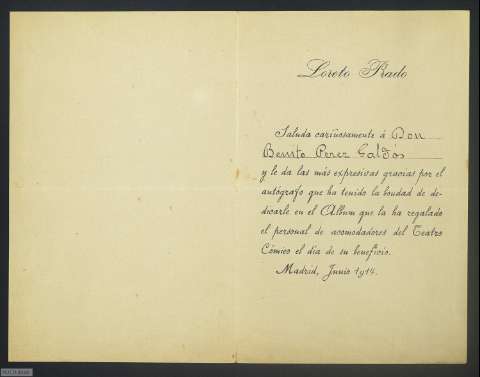 Loreto Prado
Saluda cariñosamente á Don
Benito Perez Galdós
y le da las más expresivas gracias por el
autógrafo que ha tenido la bondad de de-
dicarle en el Album que la ha regalado
el personal de acomodadores del Teatro
Cómico el dia de su beneficio.
Madrid, Junio 1914.